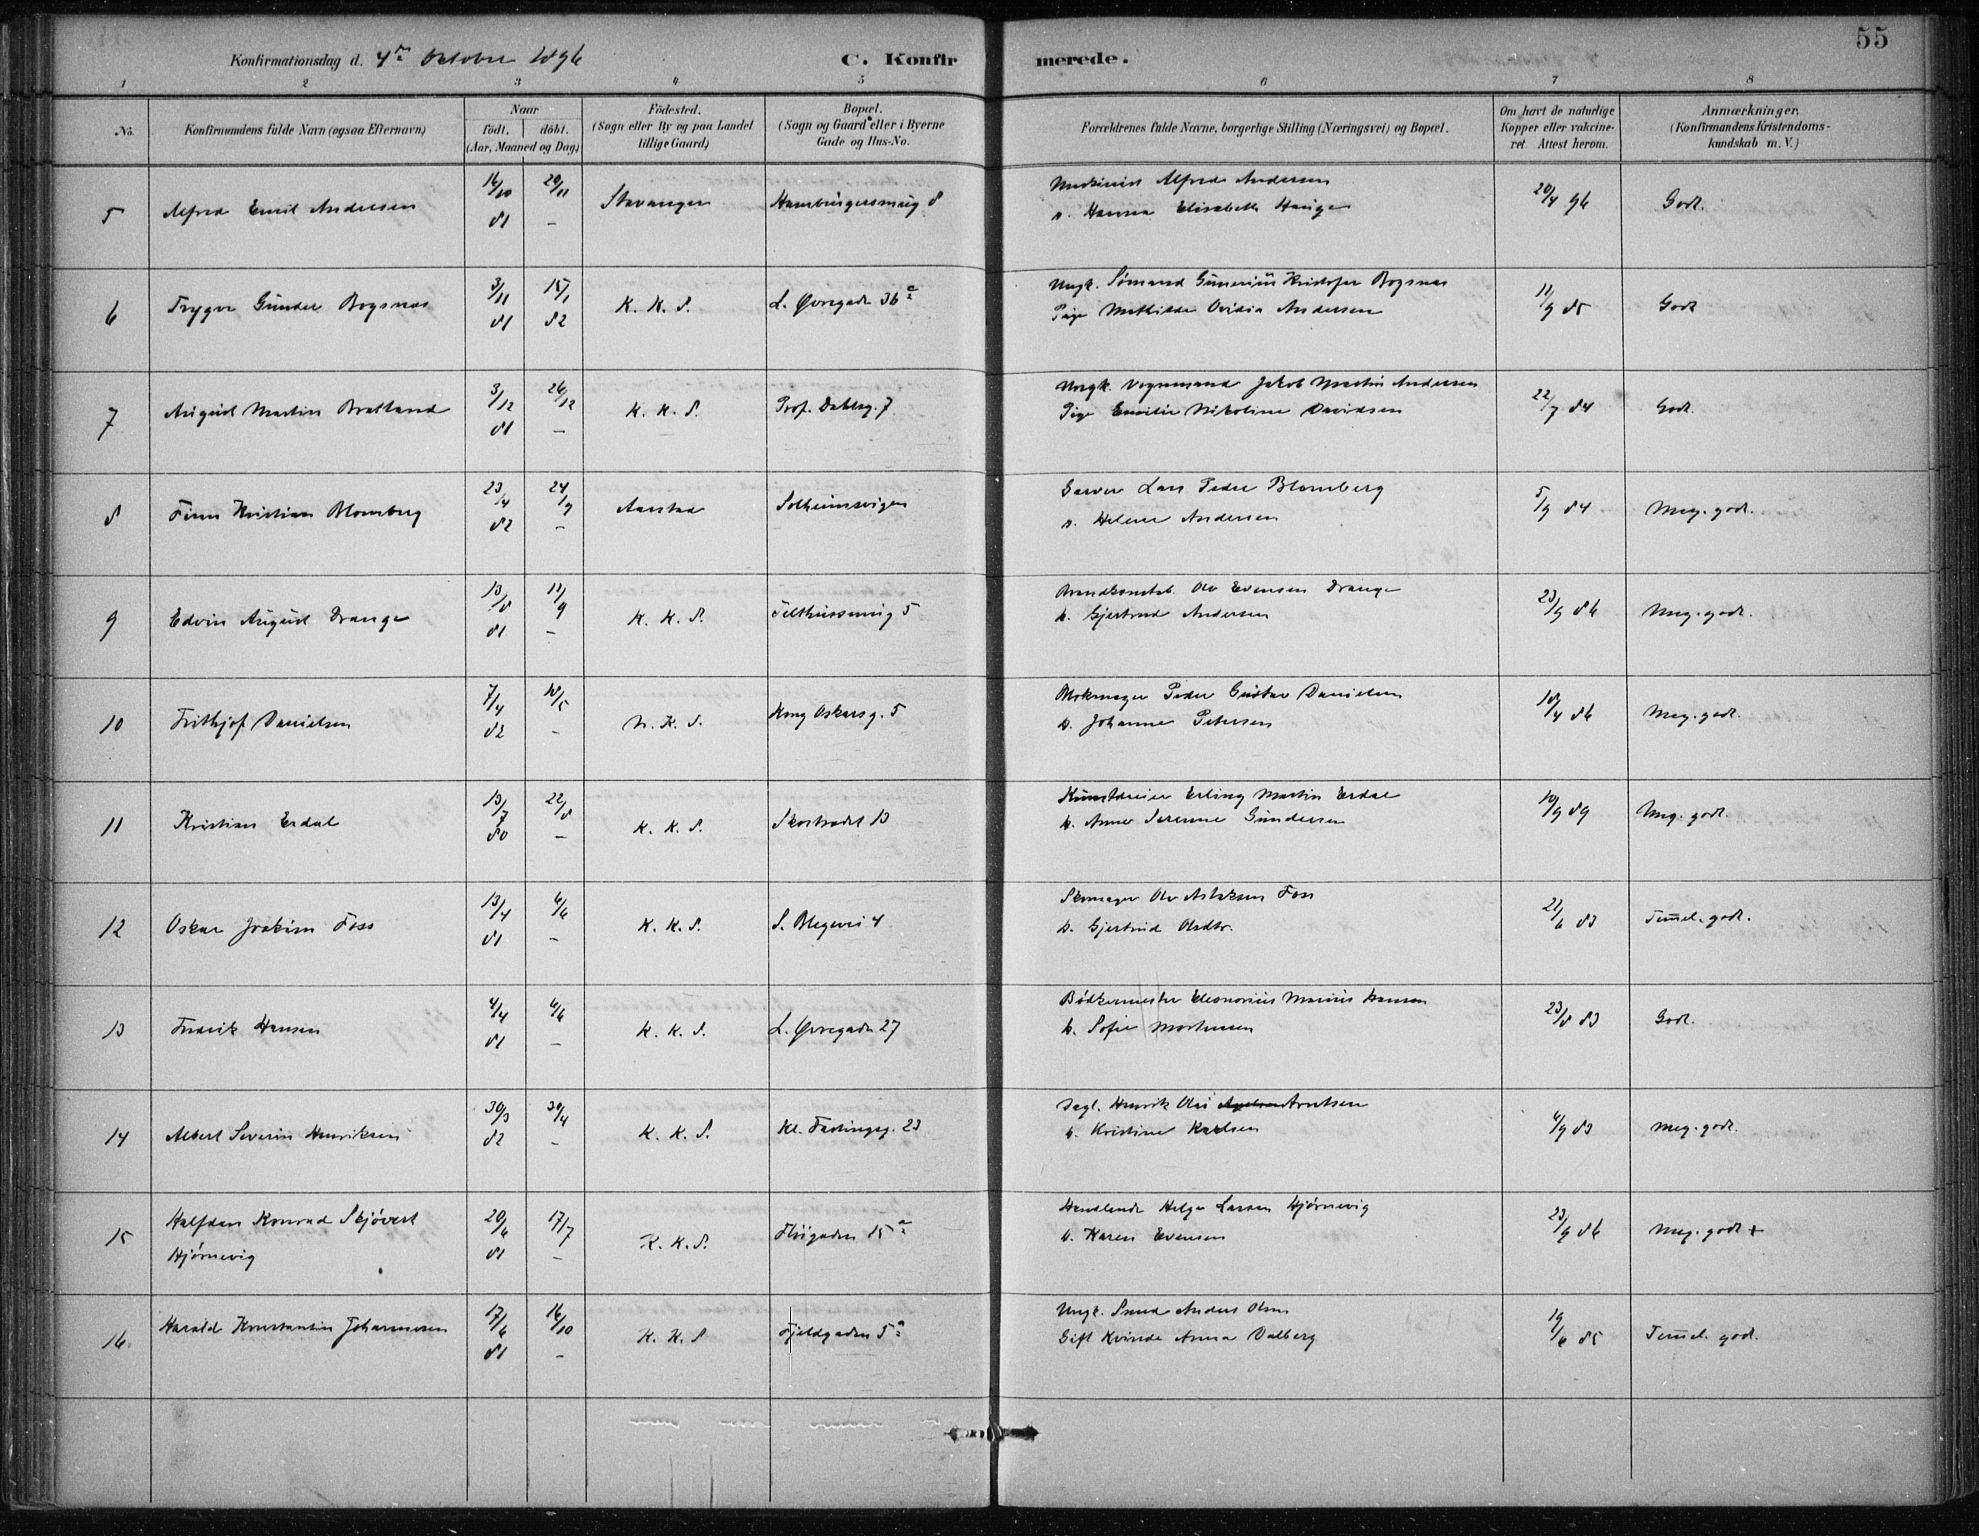 55
Konfirmationsdag d. 4de October 1896 C. Konfirmerede.
1 2 3 4 5 6 7 8
No. Konfirmandens fulde Navn (ogsaa Efternavn) Naar födt. döbt. (Aar, Maaned og Dag) Födested. (Sogn eller By og paa Landet tillige Gaard) Bopæl. (Sogn og Gaard eller i Byerne Gade og Hus-No. Forældrenes fulde Navne, borgerlige Stilling (Næringsvei) og Bopæl. Om havt de naturlige Kopper eller vakcineret. Attest herom. Anmærkninger, (Konfirmandens Kristendomskundskab m. V.)
5 Alfred Emil Andersen 16/10 81 20/11 – Stavanger Hamburgersmug 8 Maskinist Alfred Andersen
h. Hanna Elisabeth Hauge 20/4 96 Godt.
6 Trygve Gunder Bogsnæs 3/11 81 15/1 82 K. K. S. L. Øvregade 36a Ungk. Sømand Gunerius Kristofer Bogsnæs
Pige Mathilde Ovidia Andersen 11/9 85 Godt
7 August Martin Bratland 3/12 81 26/12 – K. K. S. Prof. Dahlsg. 7 Ungk. Vognmand Jakob Martin Andersen
Pige Emilie Nikoline Davidsen 22/7 84 Godt.
8 Finn Kristian Blomberg 23/4 82 24/9 – Aarstad Solheimsvigen Garver Lars Peder Blomberg
h. Helene Andersen 5/9 84 Meg. godt.
9 Edvin August Drange 13/8 81 11/9 – K. K. S. Telthussmug 5 Brandkonstab. Ole Evensen Drange
h. Gjertrud Andersen 23/9 86 Meg. godt.
10 Frithjof Danielsen 7/4 82 18/5 – N. K. S. Kong Oskarsg. 5 Blokmager Peder Gustav Danielsen
h. Johanne Petersen 18/4 86 Meg. godt.
11 Kristian Erdal 13/7 80 22/8 – K. K. S. Skostrædet 13 Kunstdreier Erling Martin Erdal
h. Anne Serenne Gundersen 10/9 89 Meg. godt.
12 Oskar Joakim Foss 13/4 81 6/6 – K. K. S. S. Blegevei 4 Skomager Ole Aslaksen Foss
h. Gjertrud Olsdtr. 21/6 83 Temmel. godt.
13 Fredrik Hansen 4/4 81 6/6 – K. K. S. L. Øvregade 27 Bødkermester Eleonorius Marius Hansen
h. Sofie Mortensen 23/8 83 Godt.
14 Albert Severin Henriksen 30/3 82 30/4 – K. K. S. Kl. Fastingsg. 23 Dagl. Henrik Olai Arntsen
h. Kristine Karlsen 4/9 83 Meg. godt.
15 Halfdan Konrad Skjøvest
Hjørnevig 20/6 81 17/7 – K. K. S. Fluigaden 15a Handlende Helge Larsen Hjørnevig
h. Karen Evensen 23/9 86 Meg. godt +
16 Harald Konstantin Johannesen 17/6 81 16/10 – K. K. S Fjeldgaden 5a Ungk. Smed Anders Olsen
Gift Kvinde Anna Dalberg 19/6 85 Temmel. god.